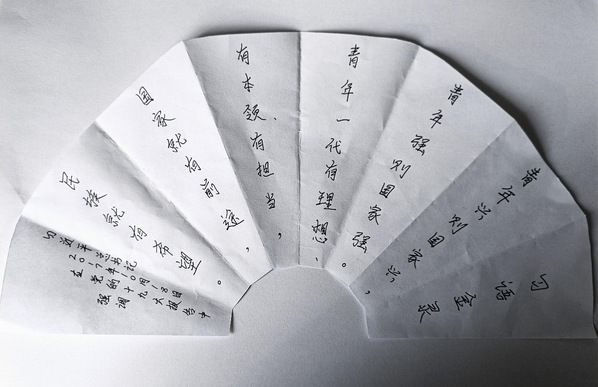 青年兴则国家兴，
青年强则国家强。
青年一代有理想、
有本领、有担当，
国家就有前途，
民族就有希望。
习近平总书记
2017年10月18日
在党的十九大报告中
强调